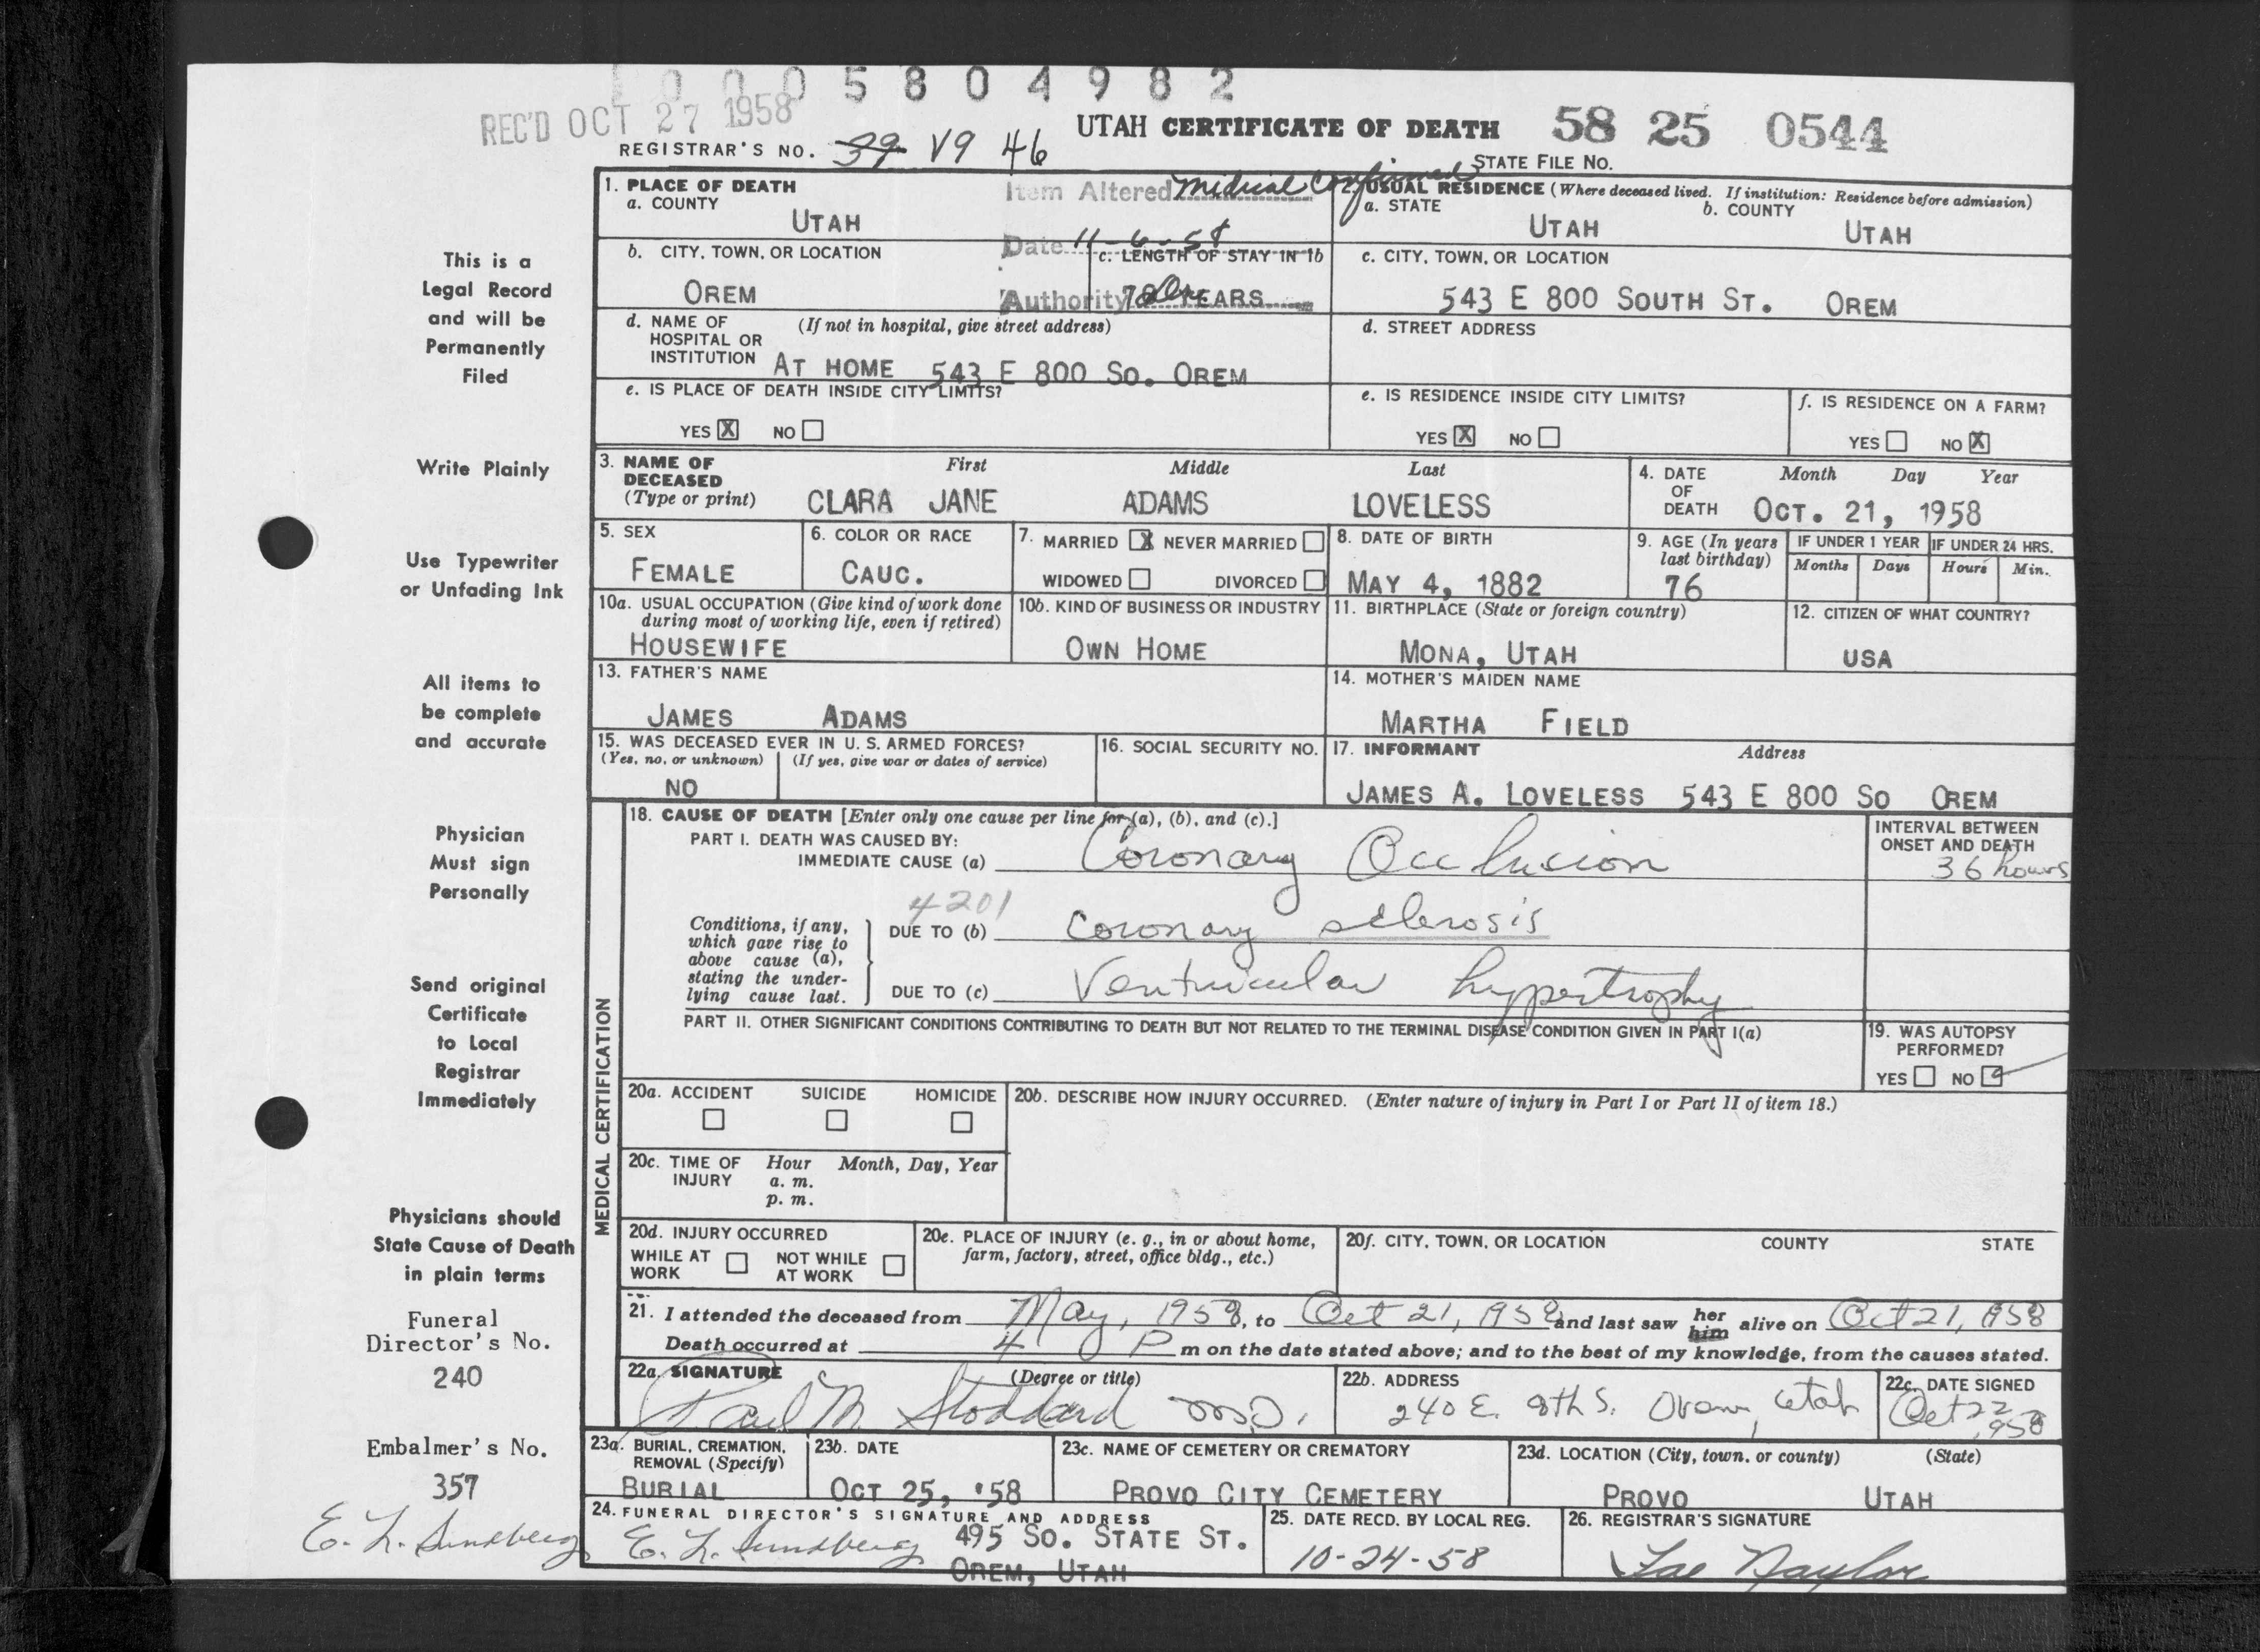 0005804982
REC'D OCT 27 1958
UTAH CERTIFICATE OF DEATH 58 25 0544
REGISTRAR'S NO. 39 V9 46
STATE FILE NO.
1. PLACE OF DEATH
a. COUNTY
UTAH
Item Altered Midical Confirmed
Date 11-6-58
Authority
2. USUAL RESIDENCE (Where deceased lived. If institution: Residence before admission)
a. STATE
UTAH
b. COUNTY
UTAH
b. CITY, TOWN, OR LOCATION
OREM
c. LENGTH OF STAY IN 1b
YEARS
c. CITY, TOWN, OR LOCATION
543 E 800 SOUTH ST. OREM
d. NAME OF HOSPITAL OR INSTITUTION
(If not in hospital, give street address)
AT HOME 543 E 800 SO. OREM
d. STREET ADDRESS
e. IS PLACE OF DEATH INSIDE CITY LIMITS?
YES X NO
e. IS RESIDENCE INSIDE CITY LIMITS?
YES X NO
f. IS RESIDENCE ON A FARM?
YES NO X
3. NAME OF DECEASED
(Type or print)
First Middle Last
CLARA JANE ADAMS LOVELESS
4. DATE OF DEATH
Month Day Year
OCT. 21, 1958
5. SEX
FEMALE
6. COLOR OR RACE
CAUC.
7. MARRIED X NEVER MARRIED
WIDOWED DIVORCED
8. DATE OF BIRTH
MAY 4, 1882
9. AGE (In years last birthday)
76
IF UNDER 1 YEAR
Months Days
IF UNDER 24 HRS.
Hours Min.
10a. USUAL OCCUPATION (Give kind of work done during most of working life, even if retired)
HOUSEWIFE
10b. KIND OF BUSINESS OR INDUSTRY
OWN HOME
11. BIRTHPLACE (State or foreign country)
MONA, UTAH
12. CITIZEN OF WHAT COUNTRY?
USA
13. FATHER'S NAME
JAMES ADAMS
14. MOTHER'S MAIDEN NAME
MARTHA FIELD
15. WAS DECEASED EVER IN U. S. ARMED FORCES?
(Yes, no, or unknown) (If yes, give war or dates of service)
NO
16. SOCIAL SECURITY NO.
17. INFORMANT Address
JAMES A. LOVELESS 543 E 800 SO OREM
MEDICAL CERTIFICATION
18. CAUSE OF DEATH [Enter only one cause per line for (a), (b), and (c).]
PART I. DEATH WAS CAUSED BY:
IMMEDIATE CAUSE (a) Coronary Occlusion
INTERVAL BETWEEN ONSET AND DEATH
36 hours
4201
Conditions, if any, which gave rise to above cause (a), stating the underlying cause last.
DUE TO (b) Coronary sclerosis
DUE TO (c) Ventricular hypertrophy
PART II. OTHER SIGNIFICANT CONDITIONS CONTRIBUTING TO DEATH BUT NOT RELATED TO THE TERMINAL DISEASE CONDITION GIVEN IN PART I(a)
19. WAS AUTOPSY PERFORMED?
YES NO
20a. ACCIDENT SUICIDE HOMICIDE
20b. DESCRIBE HOW INJURY OCCURRED. (Enter nature of injury in Part I or Part II of item 18.)
20c. TIME OF INJURY
Hour Month, Day, Year
a. m.
p. m.
20d. INJURY OCCURRED
WHILE AT WORK NOT WHILE AT WORK
20e. PLACE OF INJURY (e. g., in or about home, farm, factory, street, office bldg., etc.)
20f. CITY, TOWN, OR LOCATION COUNTY STATE
21. I attended the deceased from May, 1958, to Oct 21, 1958 and last saw her him alive on Oct 21, 1958
Death occurred at 4 P m on the date stated above; and to the best of my knowledge, from the causes stated.
22a. SIGNATURE (Degree or title)
Paul M. Stoddard M.D.
22b. ADDRESS
240 E. 8th S. Orem, Utah
22c. DATE SIGNED
Oct 22, 1958
23a. BURIAL, CREMATION, REMOVAL (Specify)
BURIAL
23b. DATE
OCT 25, '58
23c. NAME OF CEMETERY OR CREMATORY
PROVO CITY CEMETERY
23d. LOCATION (City, town, or county) (State)
PROVO UTAH
24. FUNERAL DIRECTOR'S SIGNATURE AND ADDRESS
E. L. Sundberg 495 SO. STATE ST.
OREM, UTAH
25. DATE RECD. BY LOCAL REG.
10-24-58
26. REGISTRAR'S SIGNATURE
Fae Naylor
This is a
Legal Record
and will be
Permanently
Filed
Write Plainly
Use Typewriter
or Unfading Ink
All items to
be complete
and accurate
Physician
Must sign
Personally
Send original
Certificate
to Local
Registrar
Immediately
Physicians should
State Cause of Death
in plain terms
Funeral
Director's No.
240
Embalmer's No.
357
E. L. Sundberg